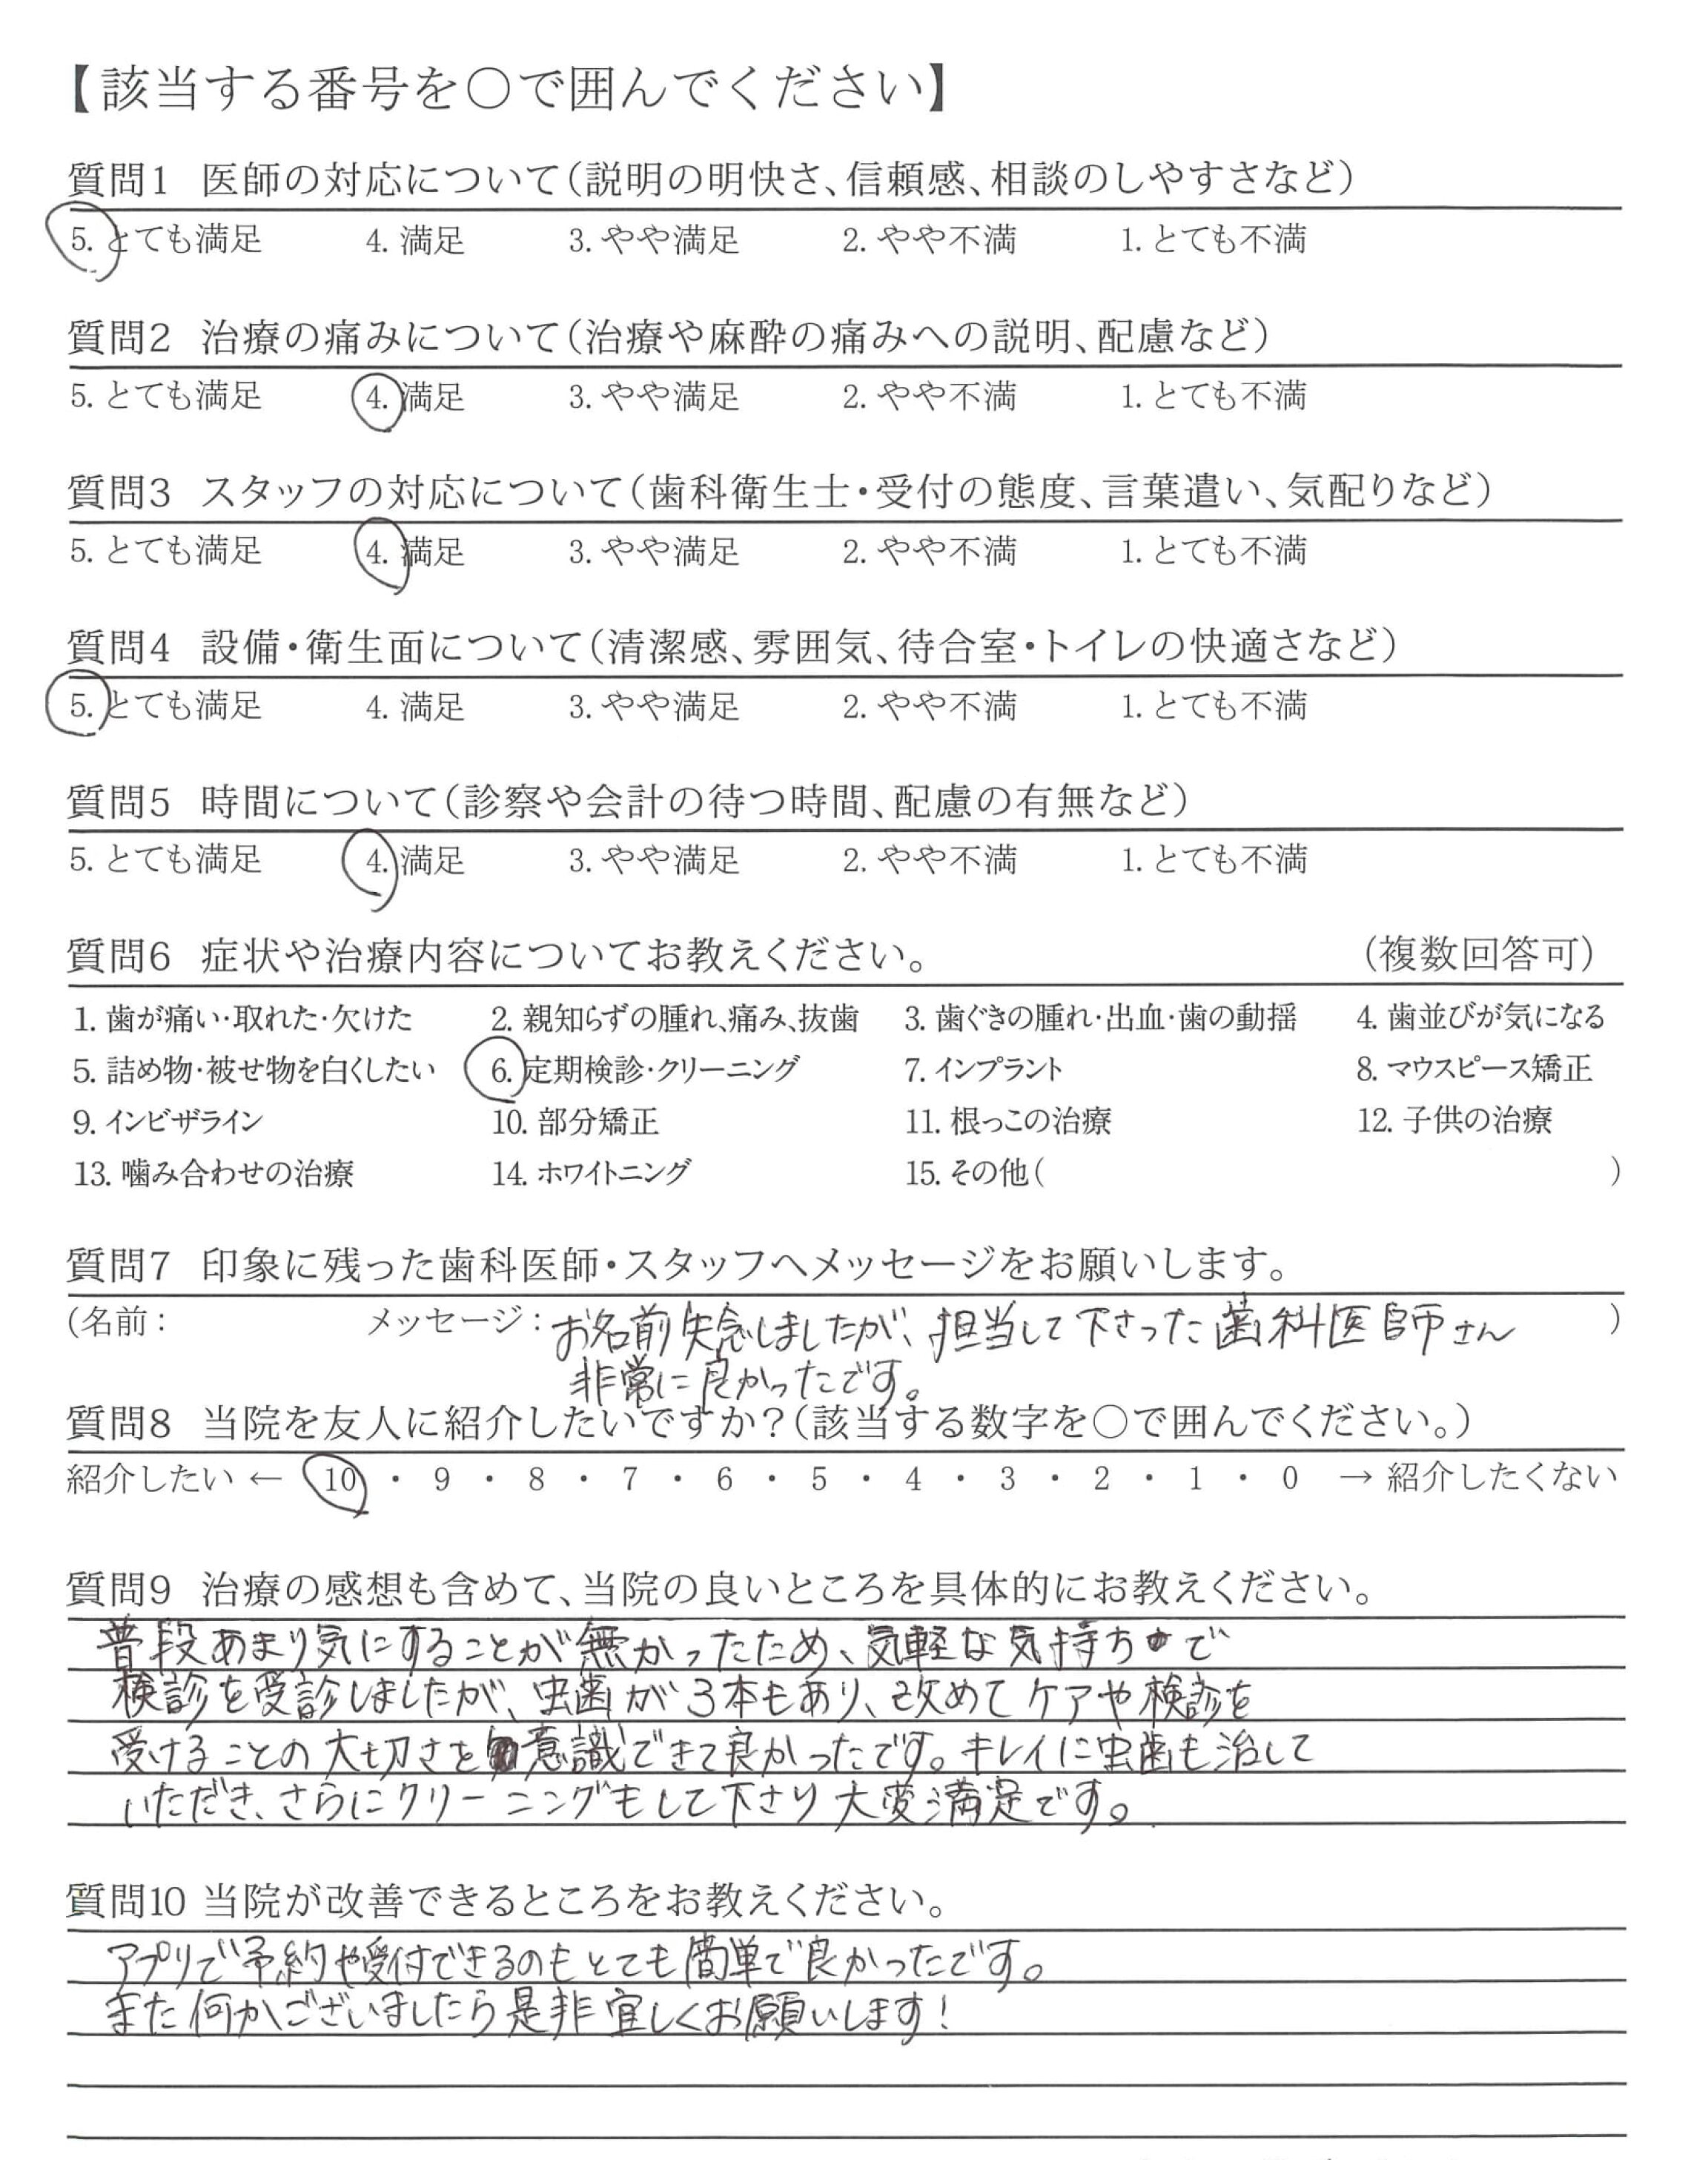 【該当する番号を○で囲んでください】
質問1 医師の対応について(説明の明快さ、信頼感、相談のしやすさなど)
5. とても満足 4. 満足 3. やや満足 2. やや不満 1. とても不満
質問2 治療の痛みについて(治療や麻酔の痛みへの説明、配慮など)
5. とても満足 4. 満足 3. やや満足 2. やや不満 1. とても不満
質問3 スタッフの対応について(歯科衛生士・受付の態度、言葉遣い、気配りなど)
5. とても満足 4. 満足 3. やや満足 2. やや不満 1. とても不満
質問4 設備・衛生面について(清潔感、雰囲気、待合室・トイレの快適さなど)
5. とても満足 4. 満足 3. やや満足 2. やや不満 1. とても不満
質問5 時間について(診察や会計の待つ時間、配慮の有無など)
5. とても満足 4. 満足 3. やや満足 2. やや不満 1. とても不満
質問6 症状や治療内容についてお教えください。 (複数回答可)
1. 歯が痛い・取れた・欠けた 2. 親知らずの腫れ、痛み、抜歯 3. 歯ぐきの腫れ・出血・歯の動揺 4. 歯並びが気になる
5. 詰め物・被せ物を白くしたい 6. 定期検診・クリーニング 7. インプラント 8. マウスピース矯正
9. インビザライン 10. 部分矯正 11. 根っこの治療 12. 子供の治療
13. 噛み合わせの治療 14. ホワイトニング 15. その他( )
質問7 印象に残った歯科医師・スタッフへメッセージをお願いします。
(名前: メッセージ: お名前失念しましたが、担当して下さった歯科医師さん )
非常に良かったです。
質問8 当院を友人に紹介したいですか?(該当する数字を○で囲んでください。)
紹介したい ← 10 ・ 9 ・ 8 ・ 7 ・ 6 ・ 5 ・ 4 ・ 3 ・ 2 ・ 1 ・ 0 → 紹介したくない
質問9 治療の感想も含めて、当院の良いところを具体的にお教えください。
普段あまり気にすることが無かったため、気軽な気持ちで
検診を受診しましたが、虫歯が3本もあり、改めてケアや検診を
受けることの大切さを意識できて良かったです。キレイに虫歯も治して
いただき、さらにクリーニングもして下さり大変満足です。
質問10 当院が改善できるところをお教えください。
アプリで予約や受付できるのもとても簡単で良かったです。
また何かございましたら是非宜しくお願いします!